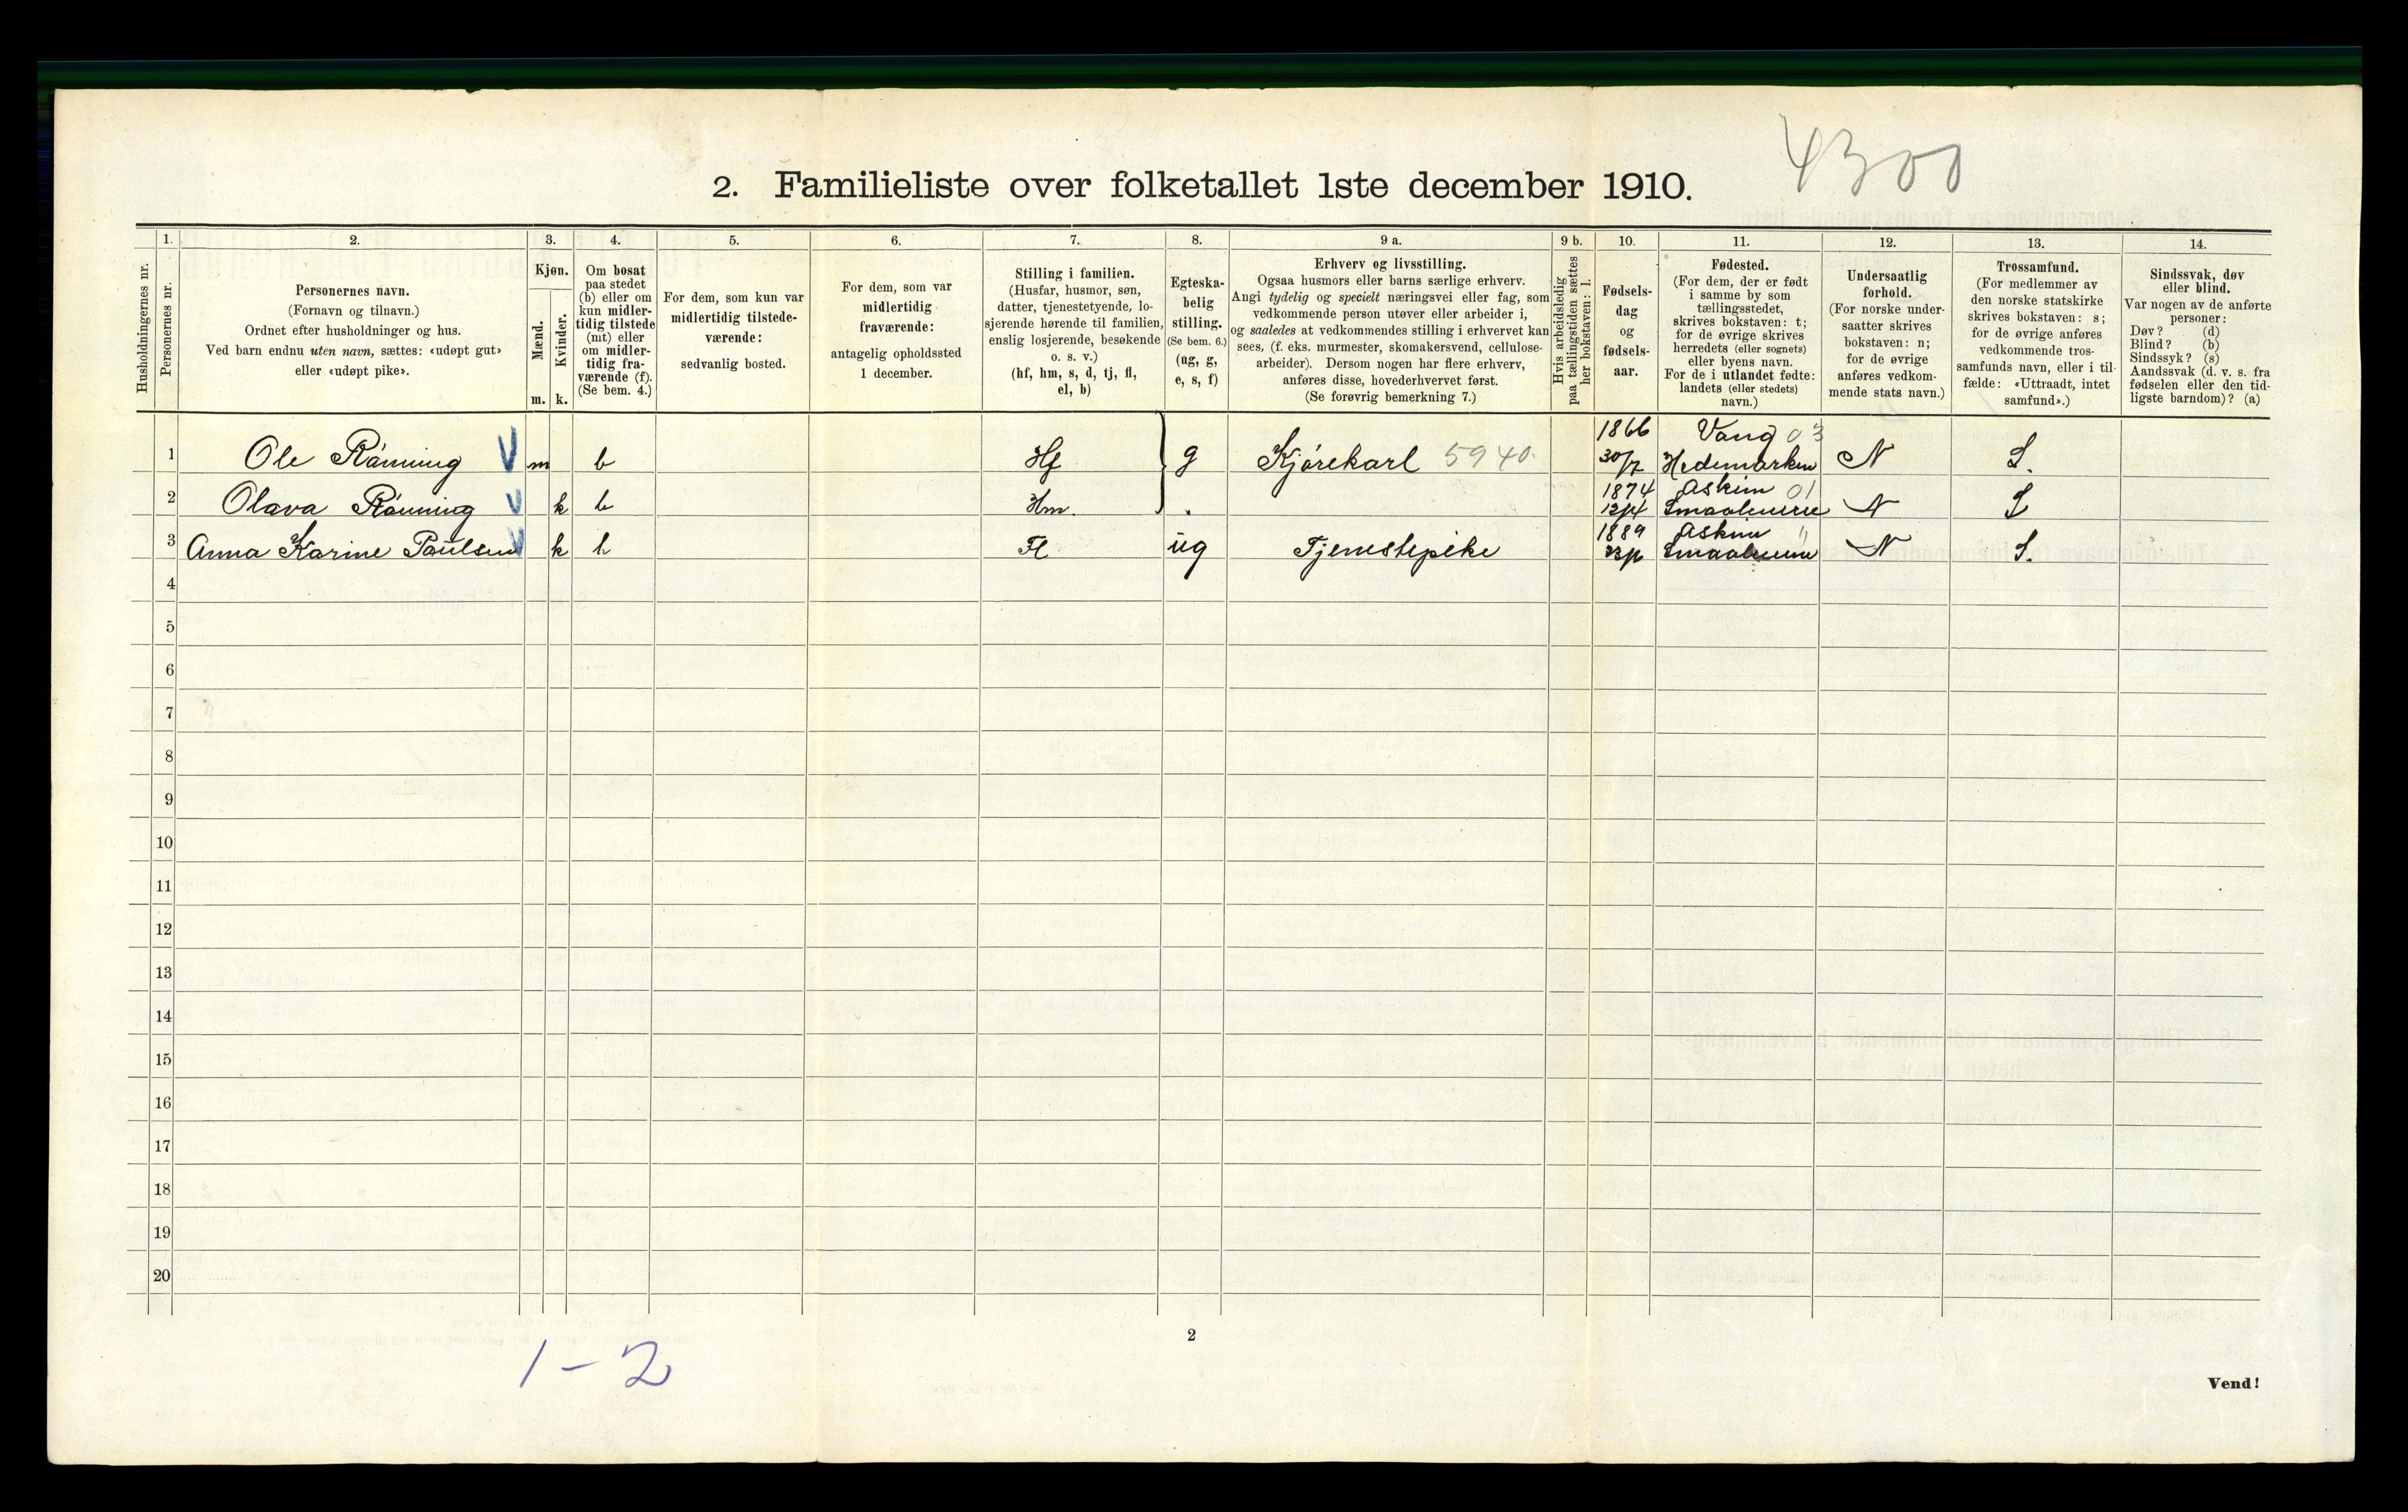 4300
2. Familieliste over folketallet 1ste december 1910.
1. 2. 3. 4. 5. 6. 7. 8. 9 a. 9 b. 10. 11. 12. 13. 14.
Husholdningernes nr.
Personernes nr.
Personernes navn.
(Fornavn og tilnavn.)
Ordnet efter husholdninger og hus.
Ved barn endnu uten navn, sættes: «udøpt gut»
eller «udøpt pike».
Kjøn.
Mænd.
Kvinder.
m. k.
Om bosat
paa stedet
(b) eller om
kun midler-
tidig tilstede
(mt) eller
om midler-
tidig fra-
værende (f).
(Se bem. 4.)
For dem, som kun var
midlertidig tilstede-
værende:
sedvanlig bosted.
For dem, som var
midlertidig
fraværende:
antagelig opholdssted
1 december.
Stilling i familien.
(Husfar, husmor, søn,
datter, tjenestetyende, lo-
sjerende hørende til familien,
enslig losjerende, besøkende
o. s. v.)
(hf, hm, s, d, tj, fl,
el, b)
Egteska-
belig
stilling.
(Se bem. 6.)
(ug, g,
e, s, f)
Erhverv og livsstilling.
Ogsaa husmors eller barns særlige erhverv.
Angi tydelig og specielt næringsvei eller fag, som
vedkommende person utøver eller arbeider i,
og saaledes at vedkommendes stilling i erhvervet kan
sees, (f. eks. murmester, skomakersvend, cellulose-
arbeider). Dersom nogen har flere erhverv,
anføres disse, hovederhvervet først.
(Se forøvrig bemerkning 7.)
Hvis arbeidsledig
paa tællingstiden sættes
her bokstaven: l.
Fødsels-
dag
og
fødsels-
aar.
Fødested.
(For dem, der er født
i samme by som
tællingsstedet,
skrives bokstaven: t;
for de øvrige skrives
herredets (eller sognets)
eller byens navn.
For de i utlandet fødte:
landets (eller stedets)
navn.)
Undersaatlig
forhold.
(For norske under-
saatter skrives
bokstaven: n;
for de øvrige
anføres vedkom-
mende stats navn.)
Trossamfund.
(For medlemmer av
den norske statskirke
skrives bokstaven: s;
for de øvrige anføres
vedkommende tros-
samfunds navn, eller i til-
fælde: «Uttraadt, intet
samfund».)
Sindssvak, døv
eller blind.
Var nogen av de anførte
personer:
Døv? (d)
Blind? (b)
Sindssyk? (s)
Aandssvak (d. v. s. fra
fødselen eller den tid-
ligste barndom)? (a)
1 Ole Rønning V m b Hf g Kjørekarl 5940. 1866 30/7 Vang 03 Hedemarken N S.
2 Olava Rønning V k b Hm. . 1874 12/4 Askim 01 Smaalenene N S
3 Anna Karine Paulsen V k b Fl ug Tjenestepike 1889 Askim " Smaalenene N S.
4
5
6
7
8
9
10
11
12
13
14
15
16
17
18
19
20
2
1-2
Vend!